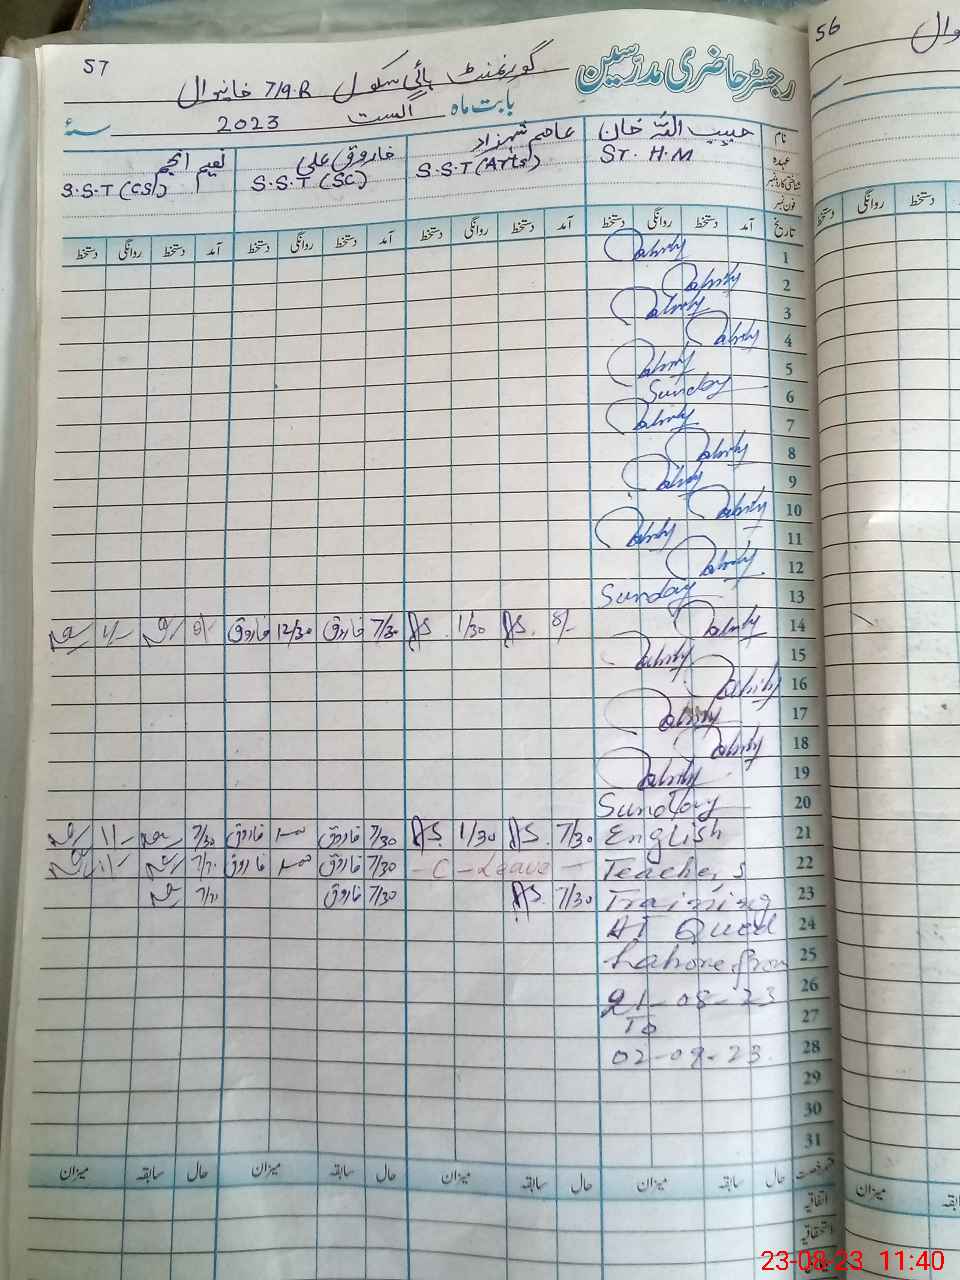 57
56
رجسٹر حاضری مدرسین
گورنمنٹ ہائی سکول 7/9R خانیوال
بابت ماہ اگست 2023 سنہ
نام حبیب اللہ خان عاصم شہزاد فاروق علی نعیم انجم
عہدہ Sr. H.M S.S.T (Arts) S.S.T (SC) S.S.T (CS)
شناختی کارڈ نمبر
فون نمبر
تاریخ آمد دستخط روانگی دستخط آمد دستخط روانگی دستخط آمد دستخط روانگی دستخط آمد دستخط روانگی دستخط
1
2
3
4
5
6 Sunday
7
8
9
10
11
12
13 Sunday
14 8/- AS. 1/30 AS. 7/30 فاروق 12/30 فاروق
15
16
17
18
19
20 Sunday
21 English 7/30 AS. 1/30 AS. 7/30 فاروق فاروق 7/30
22 Teachers - C - Leave - 7/30 فاروق فاروق
23 Training 7/30 AS. 7/30 فاروق
24 AT Quad
25 Lahore from
26 21-08-23
27 To
28 02-09-23.
29
30
31
حال سابقہ میزان حال سابقہ میزان حال سابقہ میزان حال سابقہ میزان
اتفاقیہ
استحقاقیہ
روانگی دستخط
میزان
23-08-23 11:40